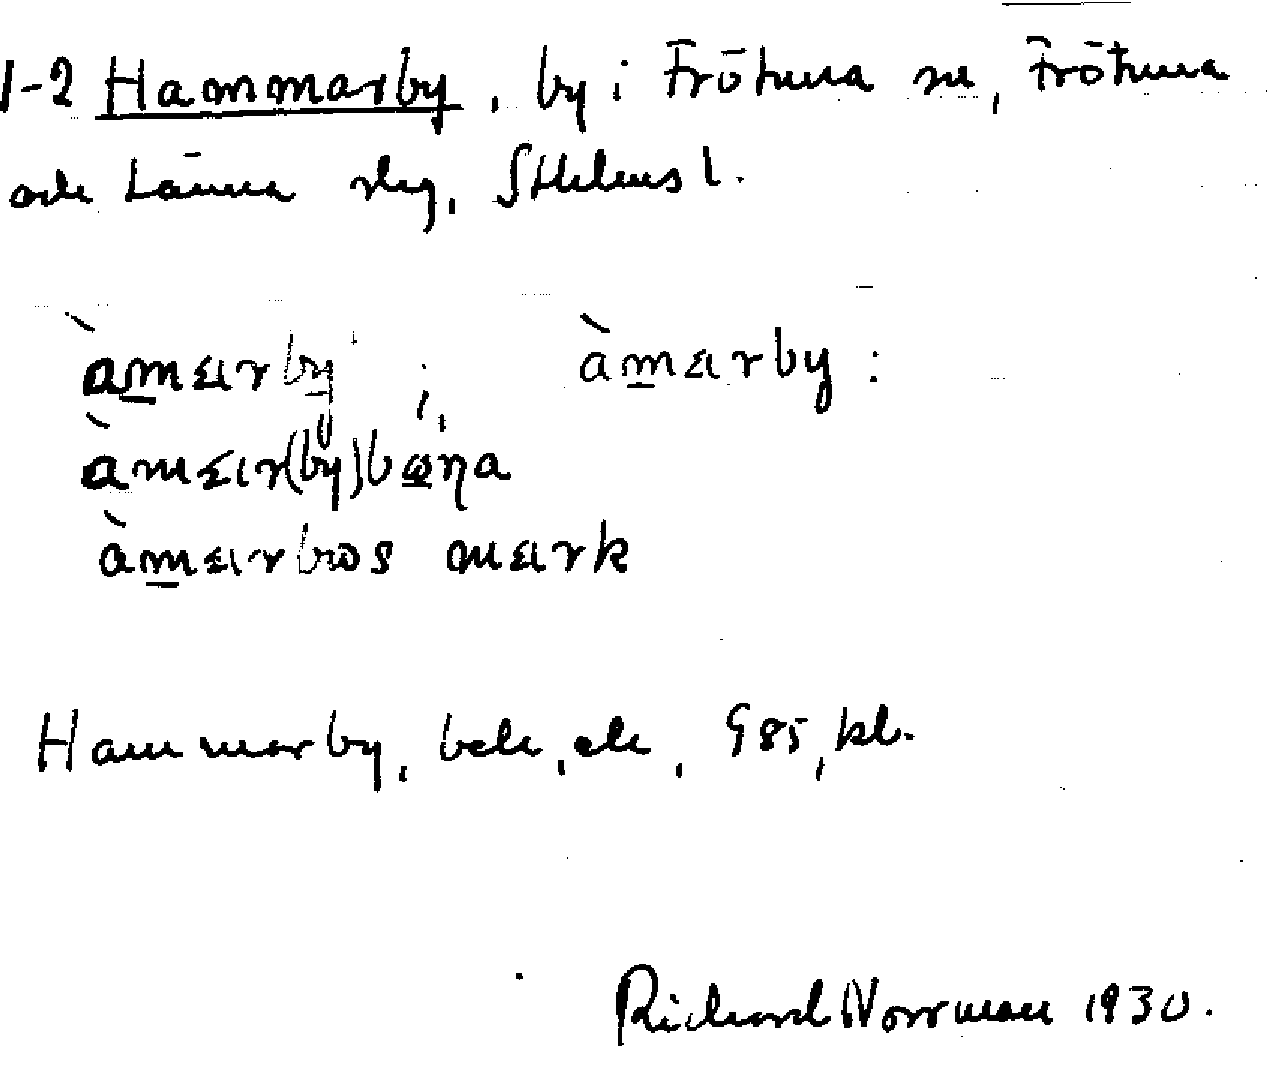 1-2 Hammarby, by i Frötuna sn, Frötuna
och Länna skg, Sthlms l.
àmarby ; àmarby :
àmar(by)bøna
àmarbos mark
Hammarby, bek, ek, G85, kb.
Richard Norrman 1930.